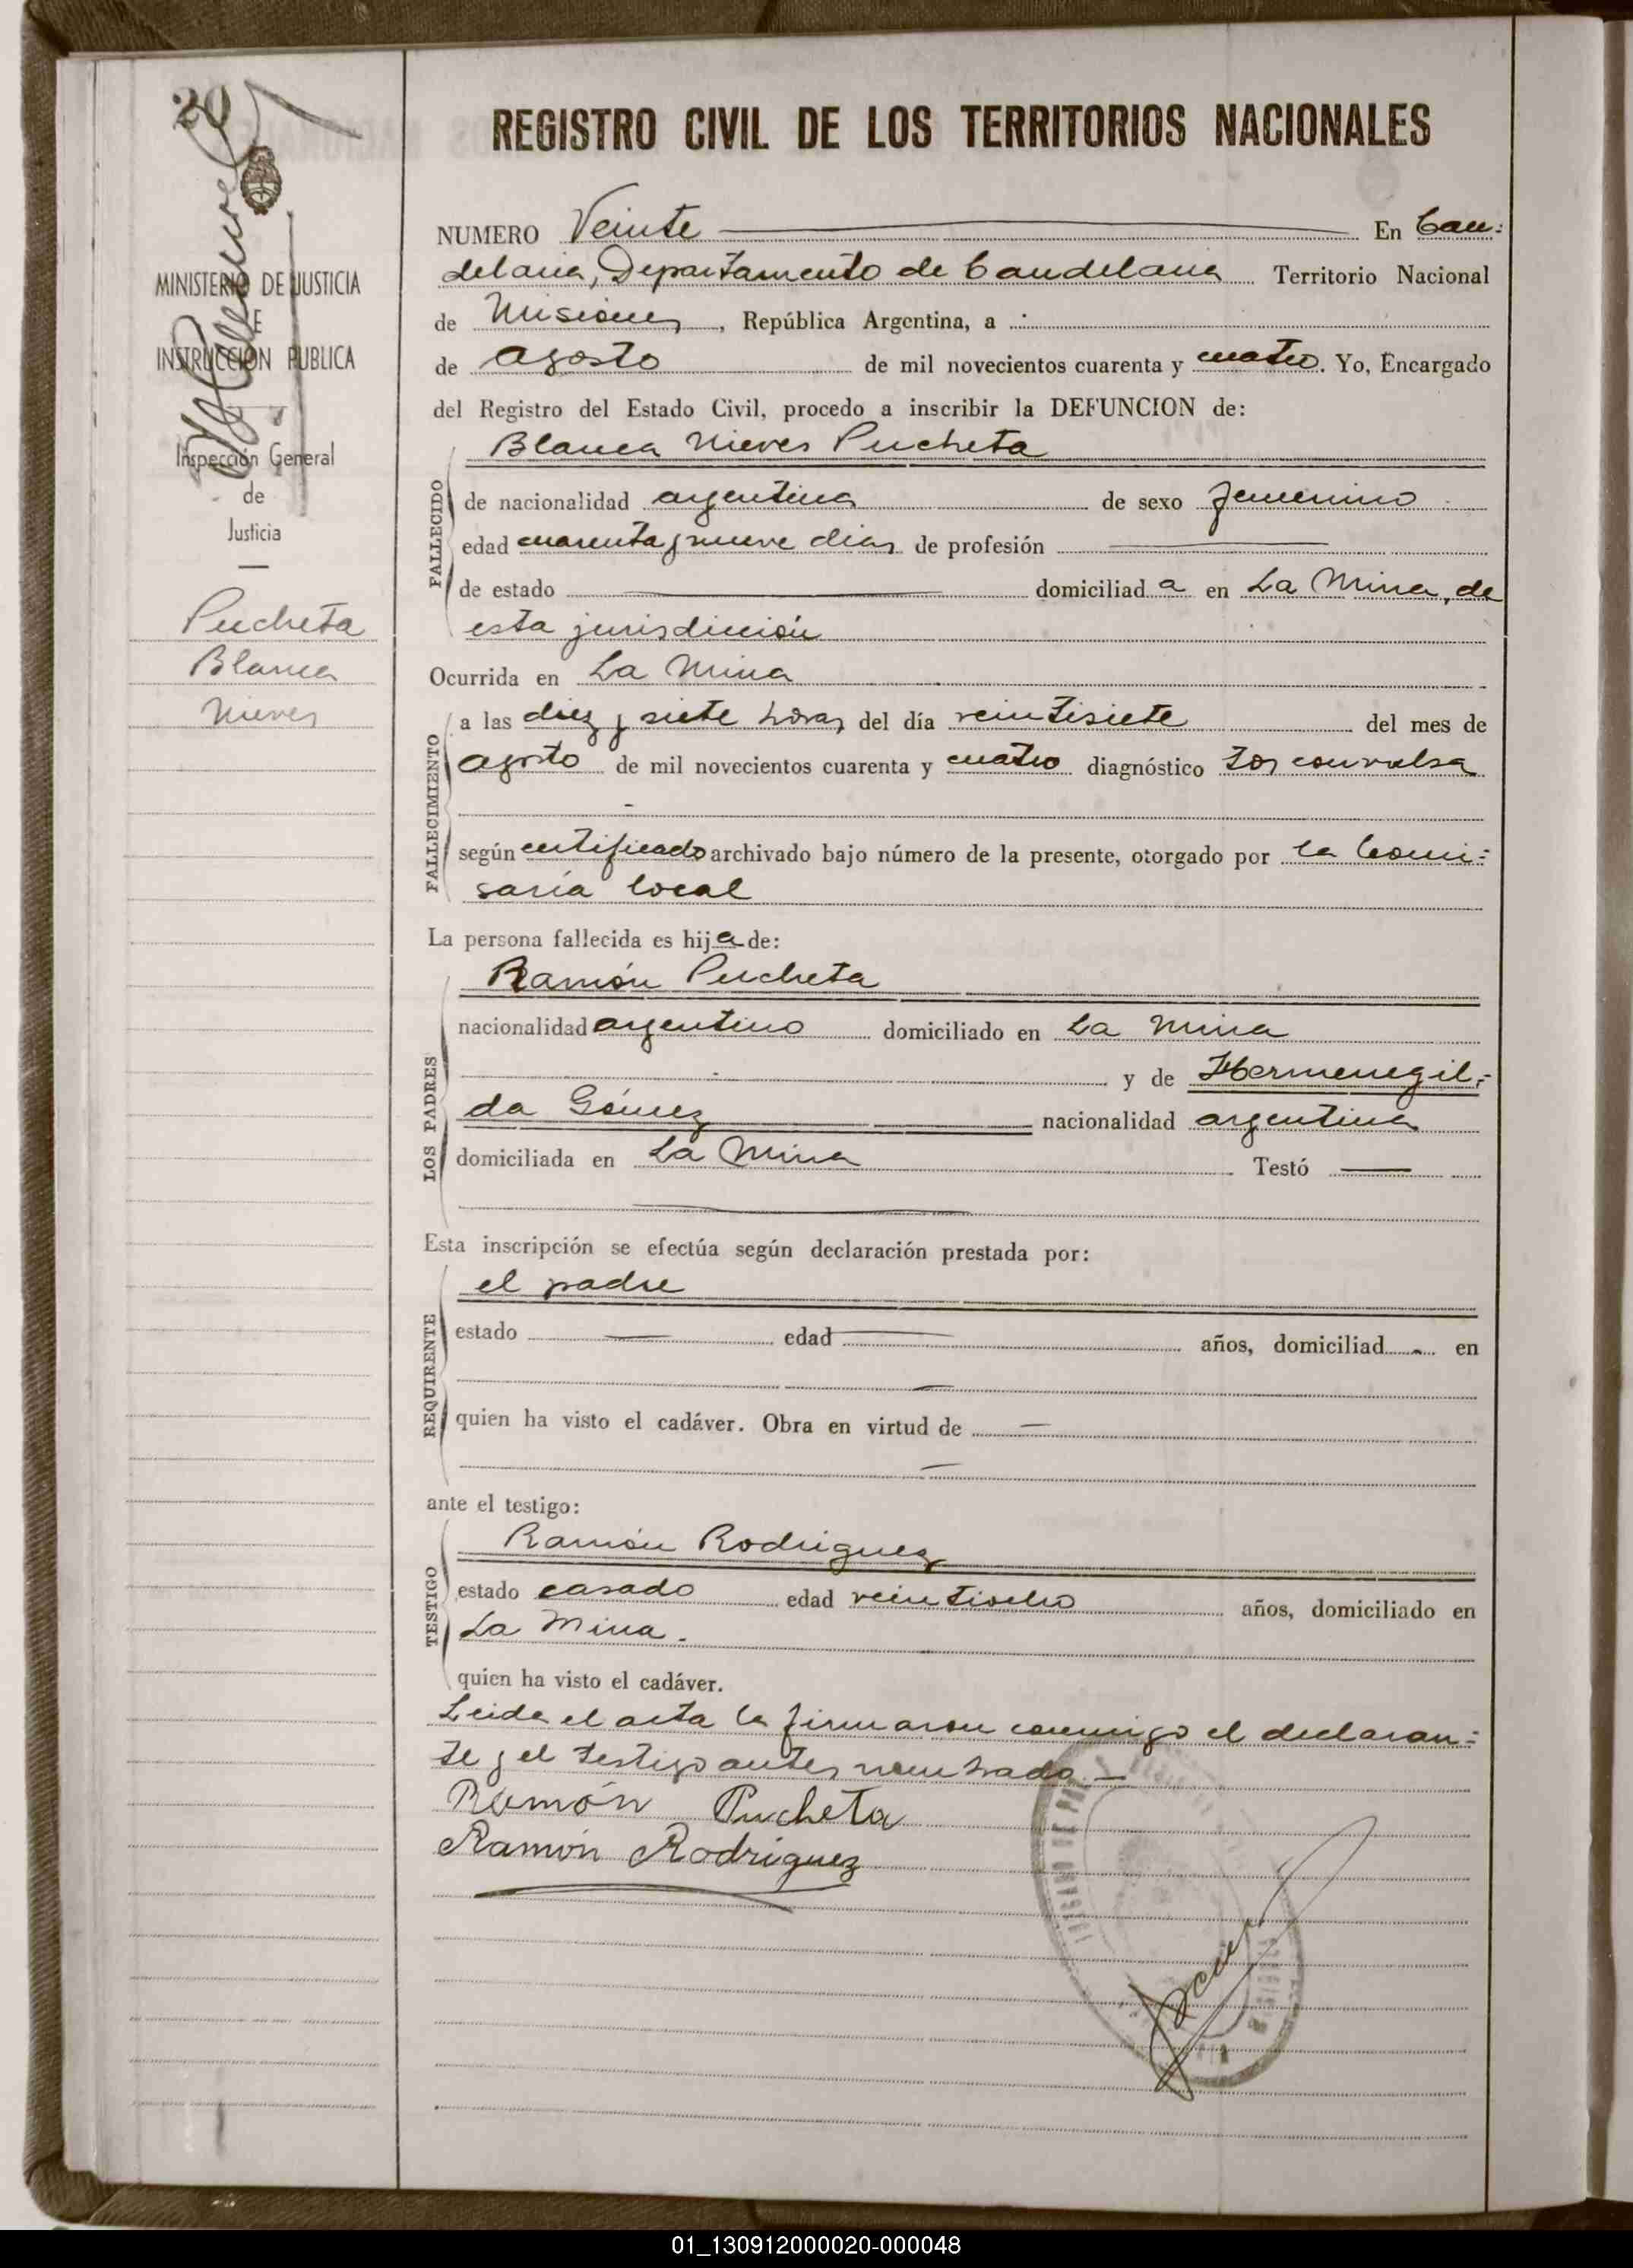 20
MINISTERIO DE JUSTICIA
E
INSTRUCCION PUBLICA
Inspección General
de
Justicia
Pucheta
Blanca
Nieves
REGISTRO CIVIL DE LOS TERRITORIOS NACIONALES
NUMERO Veinte En Can=
delaria, Departamento de Candelaria Territorio Nacional
de Misiones, República Argentina, a
de agosto de mil novecientos cuarenta y cuatro. Yo, Encargado
del Registro del Estado Civil, procedo a inscribir la DEFUNCION de:
Blanca Nieves Pucheta
FALLECIDO
de nacionalidad argentina de sexo femenino
edad cuarenta y nueve días de profesión
de estado domiciliada en La Mina, de
esta jurisdicción
Ocurrida en La Mina
FALLECIMIENTO
a las diez y siete horas del día veintisiete del mes de
agosto de mil novecientos cuarenta y cuatro diagnóstico tos convulsa
según certificado archivado bajo número de la presente, otorgado por la Comi=
saría local
La persona fallecida es hija de:
LOS PADRES
Ramón Pucheta
nacionalidad argentino domiciliado en La Mina
y de Hermenegil=
da Gómez nacionalidad argentina
domiciliada en La Mina Testó
Esta inscripción se efectúa según declaración prestada por:
REQUIRENTE
el padre
estado edad años, domiciliad en
quien ha visto el cadáver. Obra en virtud de
ante el testigo:
TESTIGO
Ramón Rodriguez
estado casado edad veintiocho años, domiciliado en
La Mina.
quien ha visto el cadáver.
Leida el acta la firmaron conmigo el declaran=
te y el testigo antes nombrado.—
Ramón Pucheta
Ramón Rodríguez
01_130912000020-000048